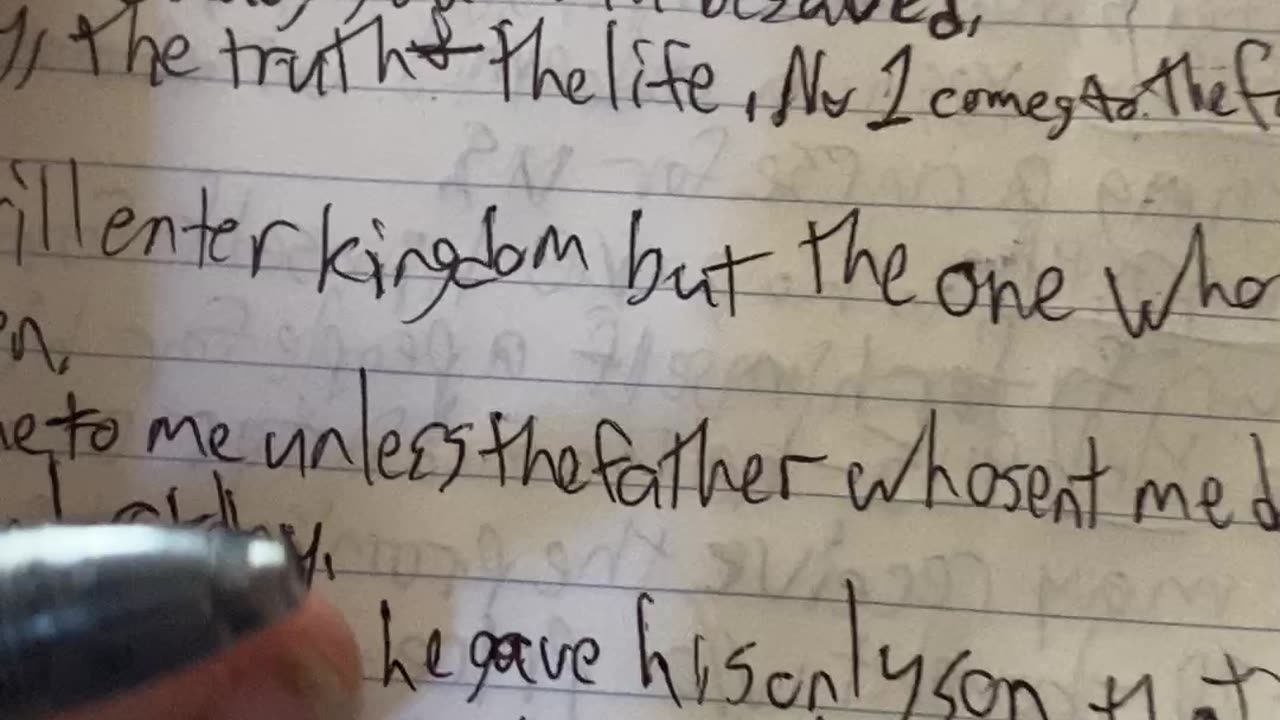 the truth & the life, No 1 comes to the f
ill enter kingdom but the one who
en.
e to me unless the father who sent me d
he gave his only son